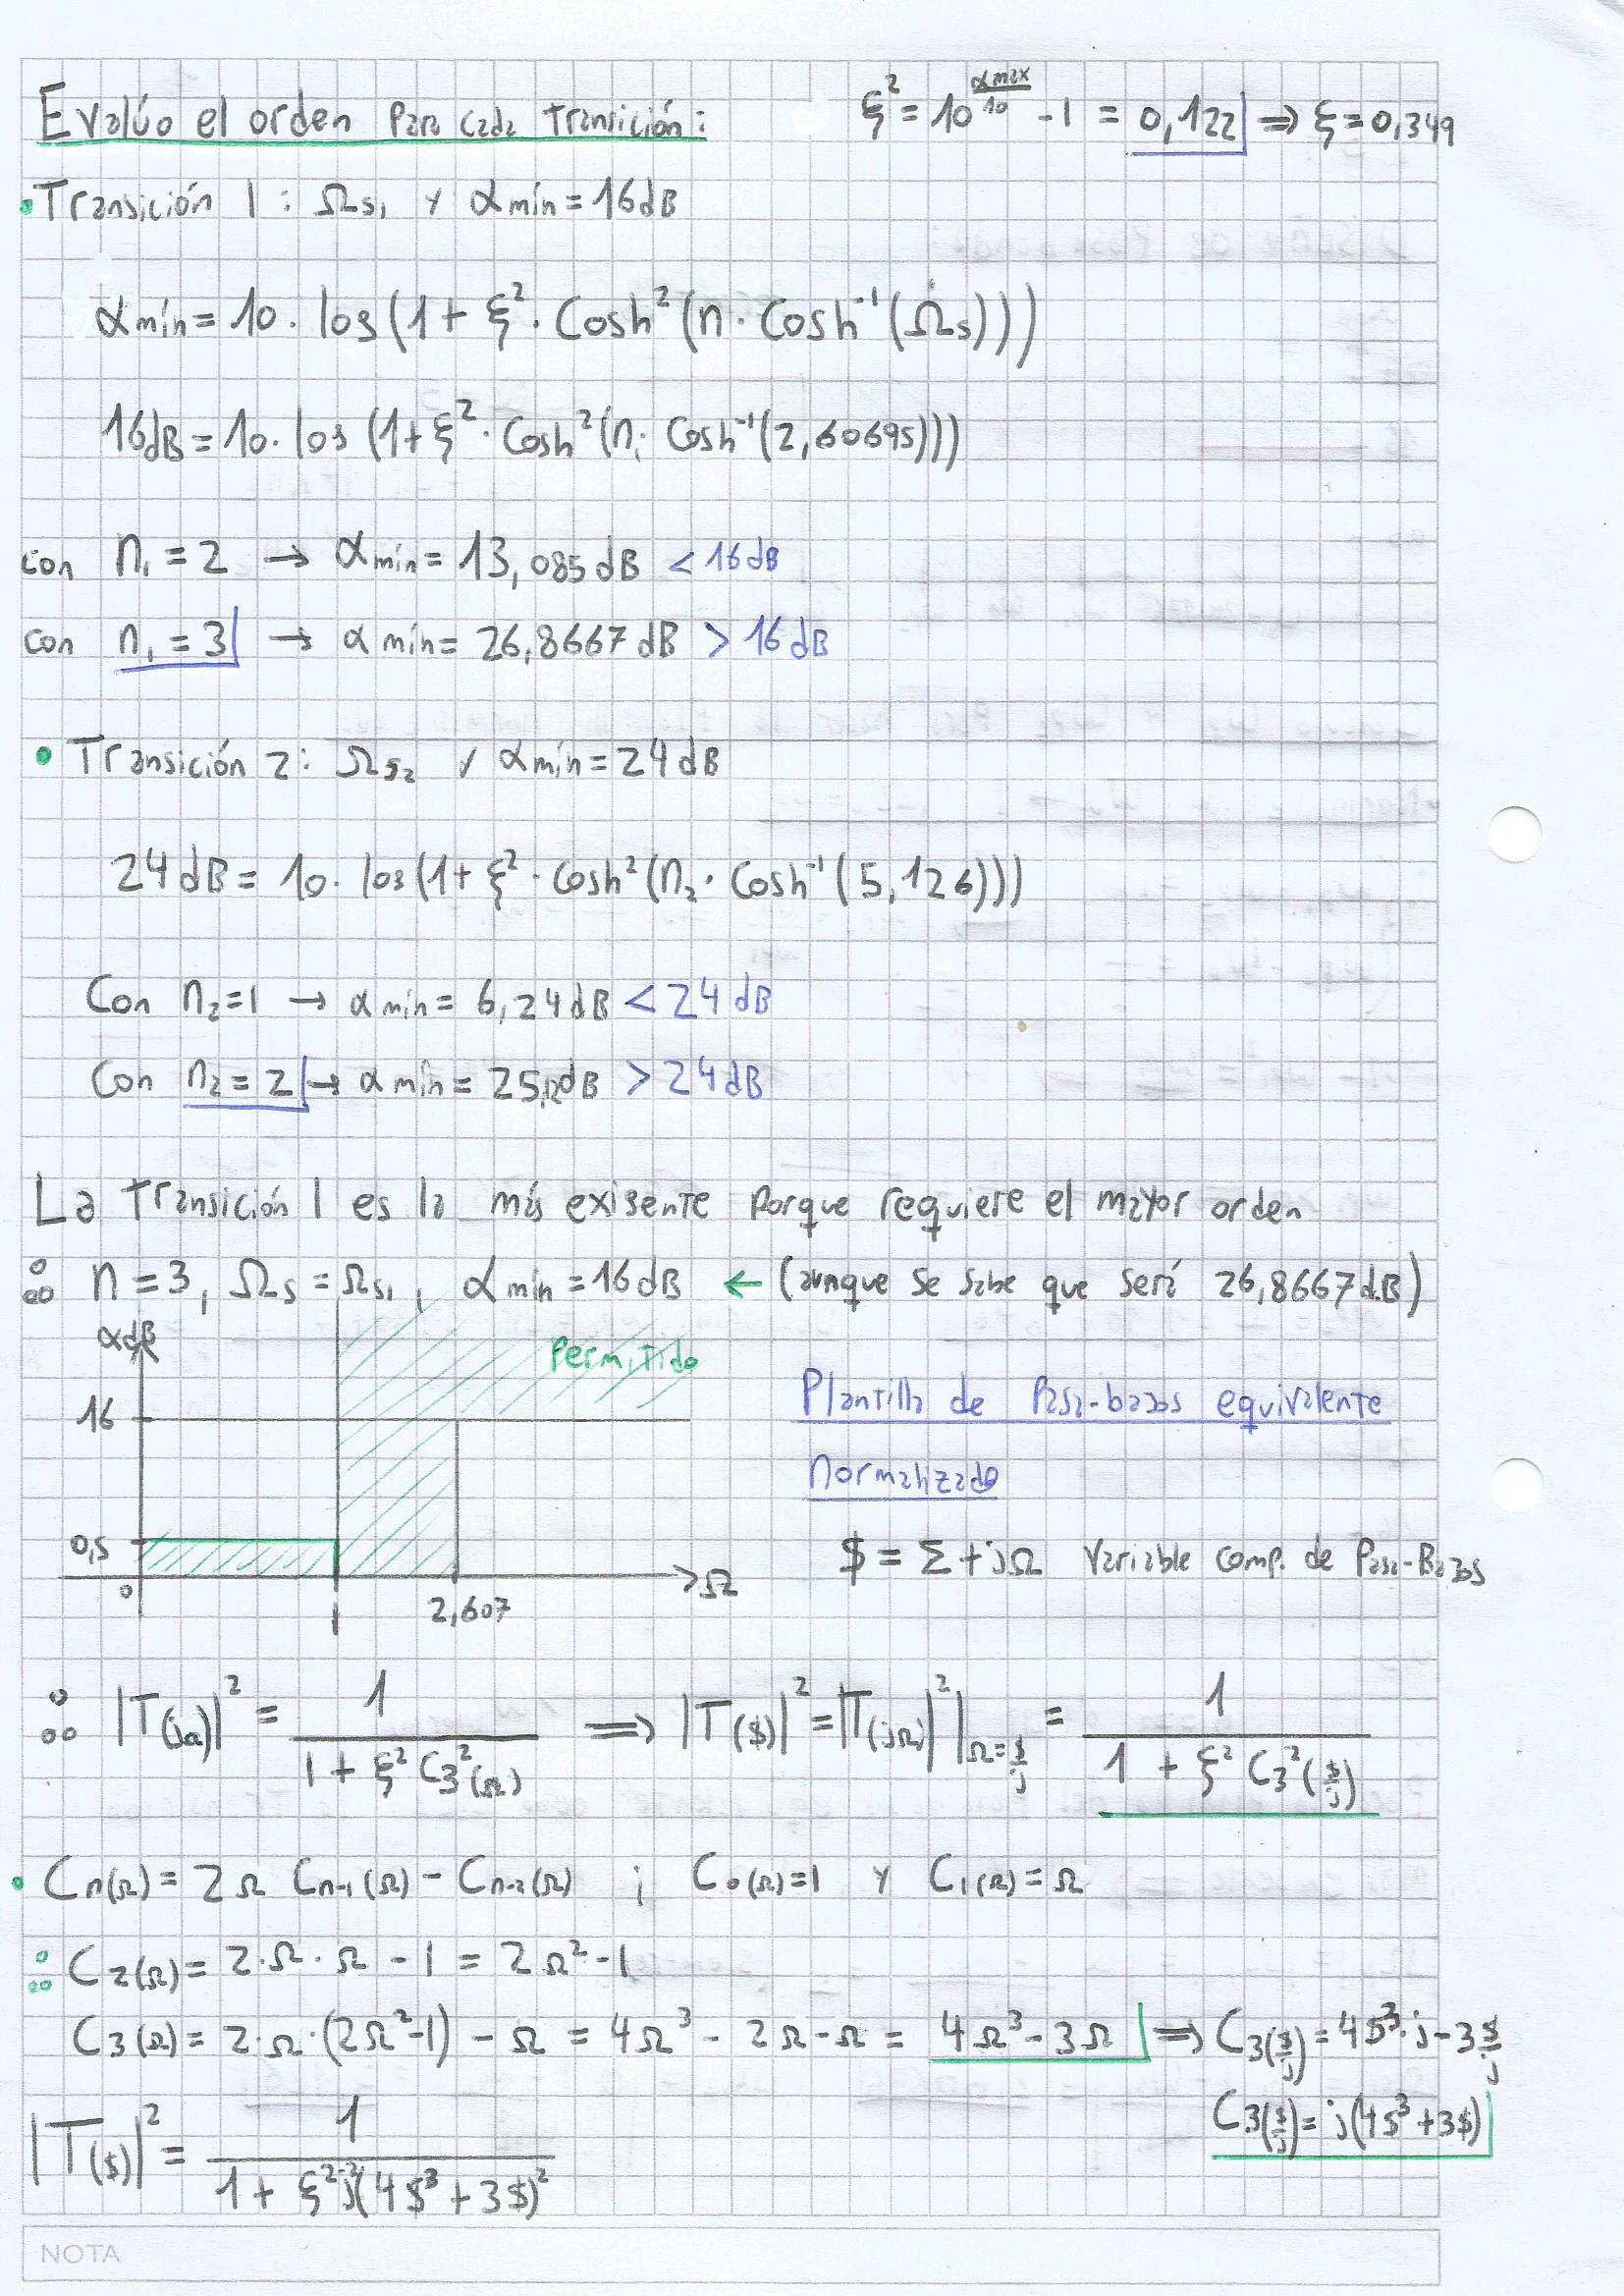 Evalúo el orden para cada transición:
ξ² = 10^(αmax/10) - 1 = 0,122 ⇒ ξ = 0,349
• Transición 1: Ωs₁ y αmín = 16dB
αmín = 10 · log(1 + ξ² · Cosh²(n · Cosh⁻¹(Ωs)))
16dB = 10 · log(1 + ξ² · Cosh²(n₁ · Cosh⁻¹(2,60695)))
con n₁ = 2 → αmín = 13,085 dB < 16 dB
con n₁ = 3 → αmín = 26,8667 dB > 16 dB
• Transición 2: Ωs₂ y αmín = 24 dB
24 dB = 10 · log(1 + ξ² · Cosh²(n₂ · Cosh⁻¹(5,126)))
Con n₂ = 1 → αmín = 6,24 dB < 24 dB
Con n₂ = 2 → αmín = dB > 24 dB
La transición 1 es la más exigente porque requiere el mayor orden
∴ n = 3, Ωs = Ωs₁, αmín = 16 dB ← (aunque se sabe que será 26,8667 dB)
αdB
Permitido
16
0,5
0
1
2,607
Ω
Plantilla de Pasa-bajos equivalente
Normalizado
$ = Σ + jΩ Variable comp. de Pasa-Bajos
∴ |T(jΩ)|² = 1 / (1 + ξ² C₃²(Ω)) ⟹ |T($)|² = |T(jΩ)|² |Ω=$/j = 1 / (1 + ξ² C₃²($/j))
• Cn(Ω) = 2Ω Cn-1(Ω) - Cn-2(Ω) ; C₀(Ω) = 1 y C₁(Ω) = Ω
∴ C₂(Ω) = 2·Ω·Ω - 1 = 2Ω² - 1
C₃(Ω) = 2·Ω·(2Ω² - 1) - Ω = 4Ω³ - 2Ω - Ω = 4Ω³ - 3Ω ⟹ C₃($/j) = 4$³·j - 3$/j
C₃($/j) = j(4$³ + 3$)
|T($)|² = 1 / (1 + ξ² j²(4$³ + 3$)²)
NOTA